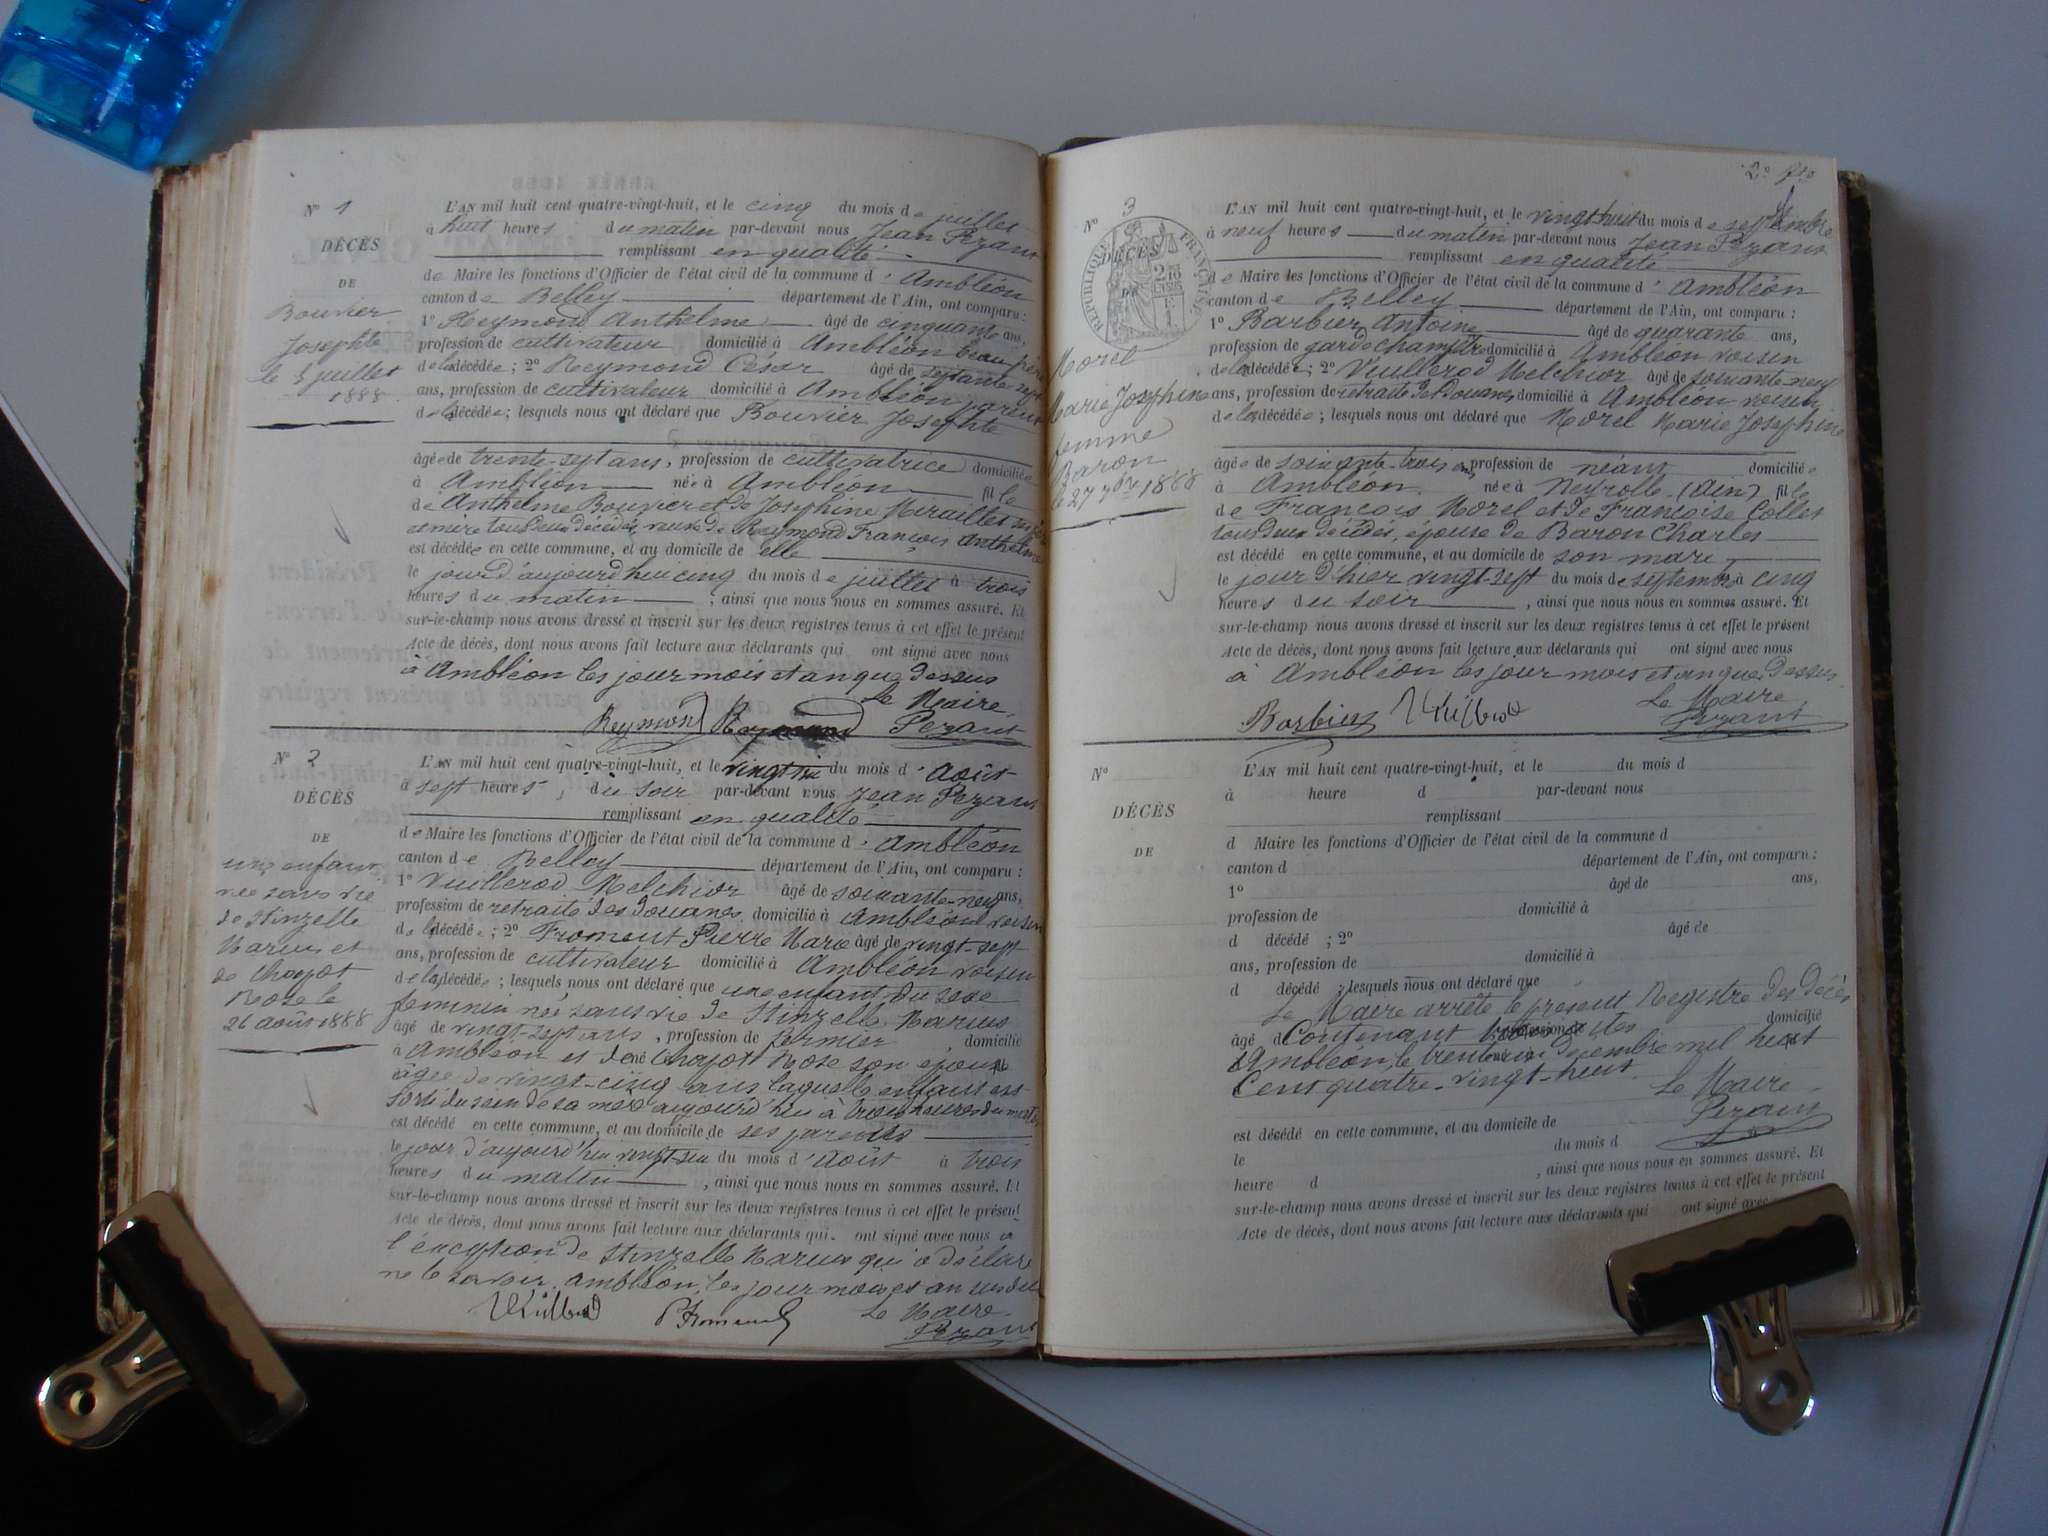 N° 1
DÉCÈS
DE
Bouvier
Josephte
le 5 juillet
1888
L'AN mil huit cent quatre-vingt-huit, et le cinq du mois de juillet
à huit heures du matin par-devant nous Jean Pezant
remplissant en qualité
de Maire les fonctions d'Officier de l'état civil de la commune d' Ambléon
canton de Belley département de l'Ain, ont comparu :
1° Reymond Anthelme âgé de cinquante ans,
profession de cultivateur domicilié à Ambléon beau frère
de la décédée ; 2° Reymond César âgé de septante sept
ans, profession de cultivateur domicilié à Ambléon parent
de la décédée ; lesquels nous ont déclaré que Bouvier Josephte
âgée de trente-sept ans, profession de cultivatrice domiciliée
à Ambléon née à Ambléon fille
de Anthelme Bouvier et de Josephine Miraillet
tous deux décédés, veuve de Reymond François Anthelme
est décédée en cette commune, et au domicile de elle
le jour d'aujourd'hui cinq du mois de juillet à trois
heures du matin ; ainsi que nous nous en sommes assuré. Et
sur-le-champ nous avons dressé et inscrit sur les deux registres tenus à cet effet le présent
Acte de décès, dont nous avons fait lecture aux déclarants qui ont signé avec nous
à Ambléon les jour mois et an que dessus
Le Maire
Reymond Reymond Pezant
N° 2
DÉCÈS
DE
une enfant
née sans vie
de Stinzelle
Marius et
de Chozot
Rose le
26 août 1888
L'AN mil huit cent quatre-vingt-huit, et le vingt six du mois d' Août
à sept heures, du soir par-devant nous Jean Pezant
remplissant en qualité
de Maire les fonctions d'Officier de l'état civil de la commune d' Ambléon
canton de Belley département de l'Ain, ont comparu :
1° Vuillerod Melchior âgé de soixante-neuf ans,
profession de retraité des douanes domicilié à Ambléon voisin
de la décédée ; 2° Froment Pierre Marie âgé de vingt-sept
ans, profession de cultivateur domicilié à Ambléon voisin
de la décédée ; lesquels nous ont déclaré que une enfant du sexe
feminin née sans vie de Stinzelle Marius
âgé de vingt-sept ans, profession de fermier domicilié
à Ambléon et de Chozot Rose son épouse
âgée de vingt-cinq ans laquelle enfant est
sorti du sein de sa mère aujourd'hui à trois heures du matin
est décédé en cette commune, et au domicile de ses parents
le jour d'aujourd'hui vingt-six du mois d' Août à trois
heures du matin, ainsi que nous nous en sommes assuré. Et
sur-le-champ nous avons dressé et inscrit sur les deux registres tenus à cet effet le présent
Acte de décès, dont nous avons fait lecture aux déclarants qui ont signé avec nous à
l'exception de Stinzelle Marius qui a déclaré
ne le savoir. Ambléon, les jour mois et an
Vuillerod P Froment Le Maire
Pezant
2e fto
N° 3
DÉCÈS
DE
RÉPUBLIQUE FRANÇAISE
Morel
Marie Josephine
femme
Baron
le 27 7bre 1888
L'AN mil huit cent quatre-vingt-huit, et le vingt-huit du mois de septembre
à neuf heures du matin par-devant nous Jean Pezant
remplissant en qualité
de Maire les fonctions d'Officier de l'état civil de la commune d' Ambléon
canton de Belley département de l'Ain, ont comparu :
1° Barbier Antoine âgé de quarante ans,
profession de garde champêtre domicilié à Ambléon voisin
de la décédée ; 2° Vuillerod Melchior âgé de soixante-neuf
ans, profession de retraité de Douanes domicilié à Ambléon voisin
de la décédée ; lesquels nous ont déclaré que Morel Marie Josephine
âgée de soixante-trois ans profession de néant domiciliée
à Ambléon née à Neyrolle (Ain) fille
de François Morel et de Françoise Collet
tous deux décédés, épouse de Baron Charles
est décédé en cette commune, et au domicile de son mari
le jour d'hier vingt-sept du mois de septembre à cinq
heures du soir, ainsi que nous nous en sommes assuré. Et
sur-le-champ nous avons dressé et inscrit sur les deux registres tenus à cet effet le présent
Acte de décès, dont nous avons fait lecture aux déclarants qui ont signé avec nous
à Ambléon les jour mois et an que dessus
Le Maire
Barbier Vuillerod Pezant
N°
DÉCÈS
DE
L'AN mil huit cent quatre-vingt-huit, et le du mois d
à heure d par-devant nous
remplissant
d Maire les fonctions d'Officier de l'état civil de la commune d
canton d département de l'Ain, ont comparu :
1° âgé de ans,
profession de domicilié à
d décédé ; 2° âgé de
ans, profession de domicilié à
d décédé ; lesquels nous ont déclaré que
Le Maire arrête le présent Registre des décès
âgé d Contenant trois actes domicilié
à Ambléon, le trente un décembre mil huit
Cent quatre-vingt-huit Le Maire
Pezant
est décédé en cette commune, et au domicile de
le du mois d
heure d , ainsi que nous nous en sommes assuré. Et
sur-le-champ nous avons dressé et inscrit sur les deux registres tenus à cet effet le présent
Acte de décès, dont nous avons fait lecture aux déclarants qui ont signé avec